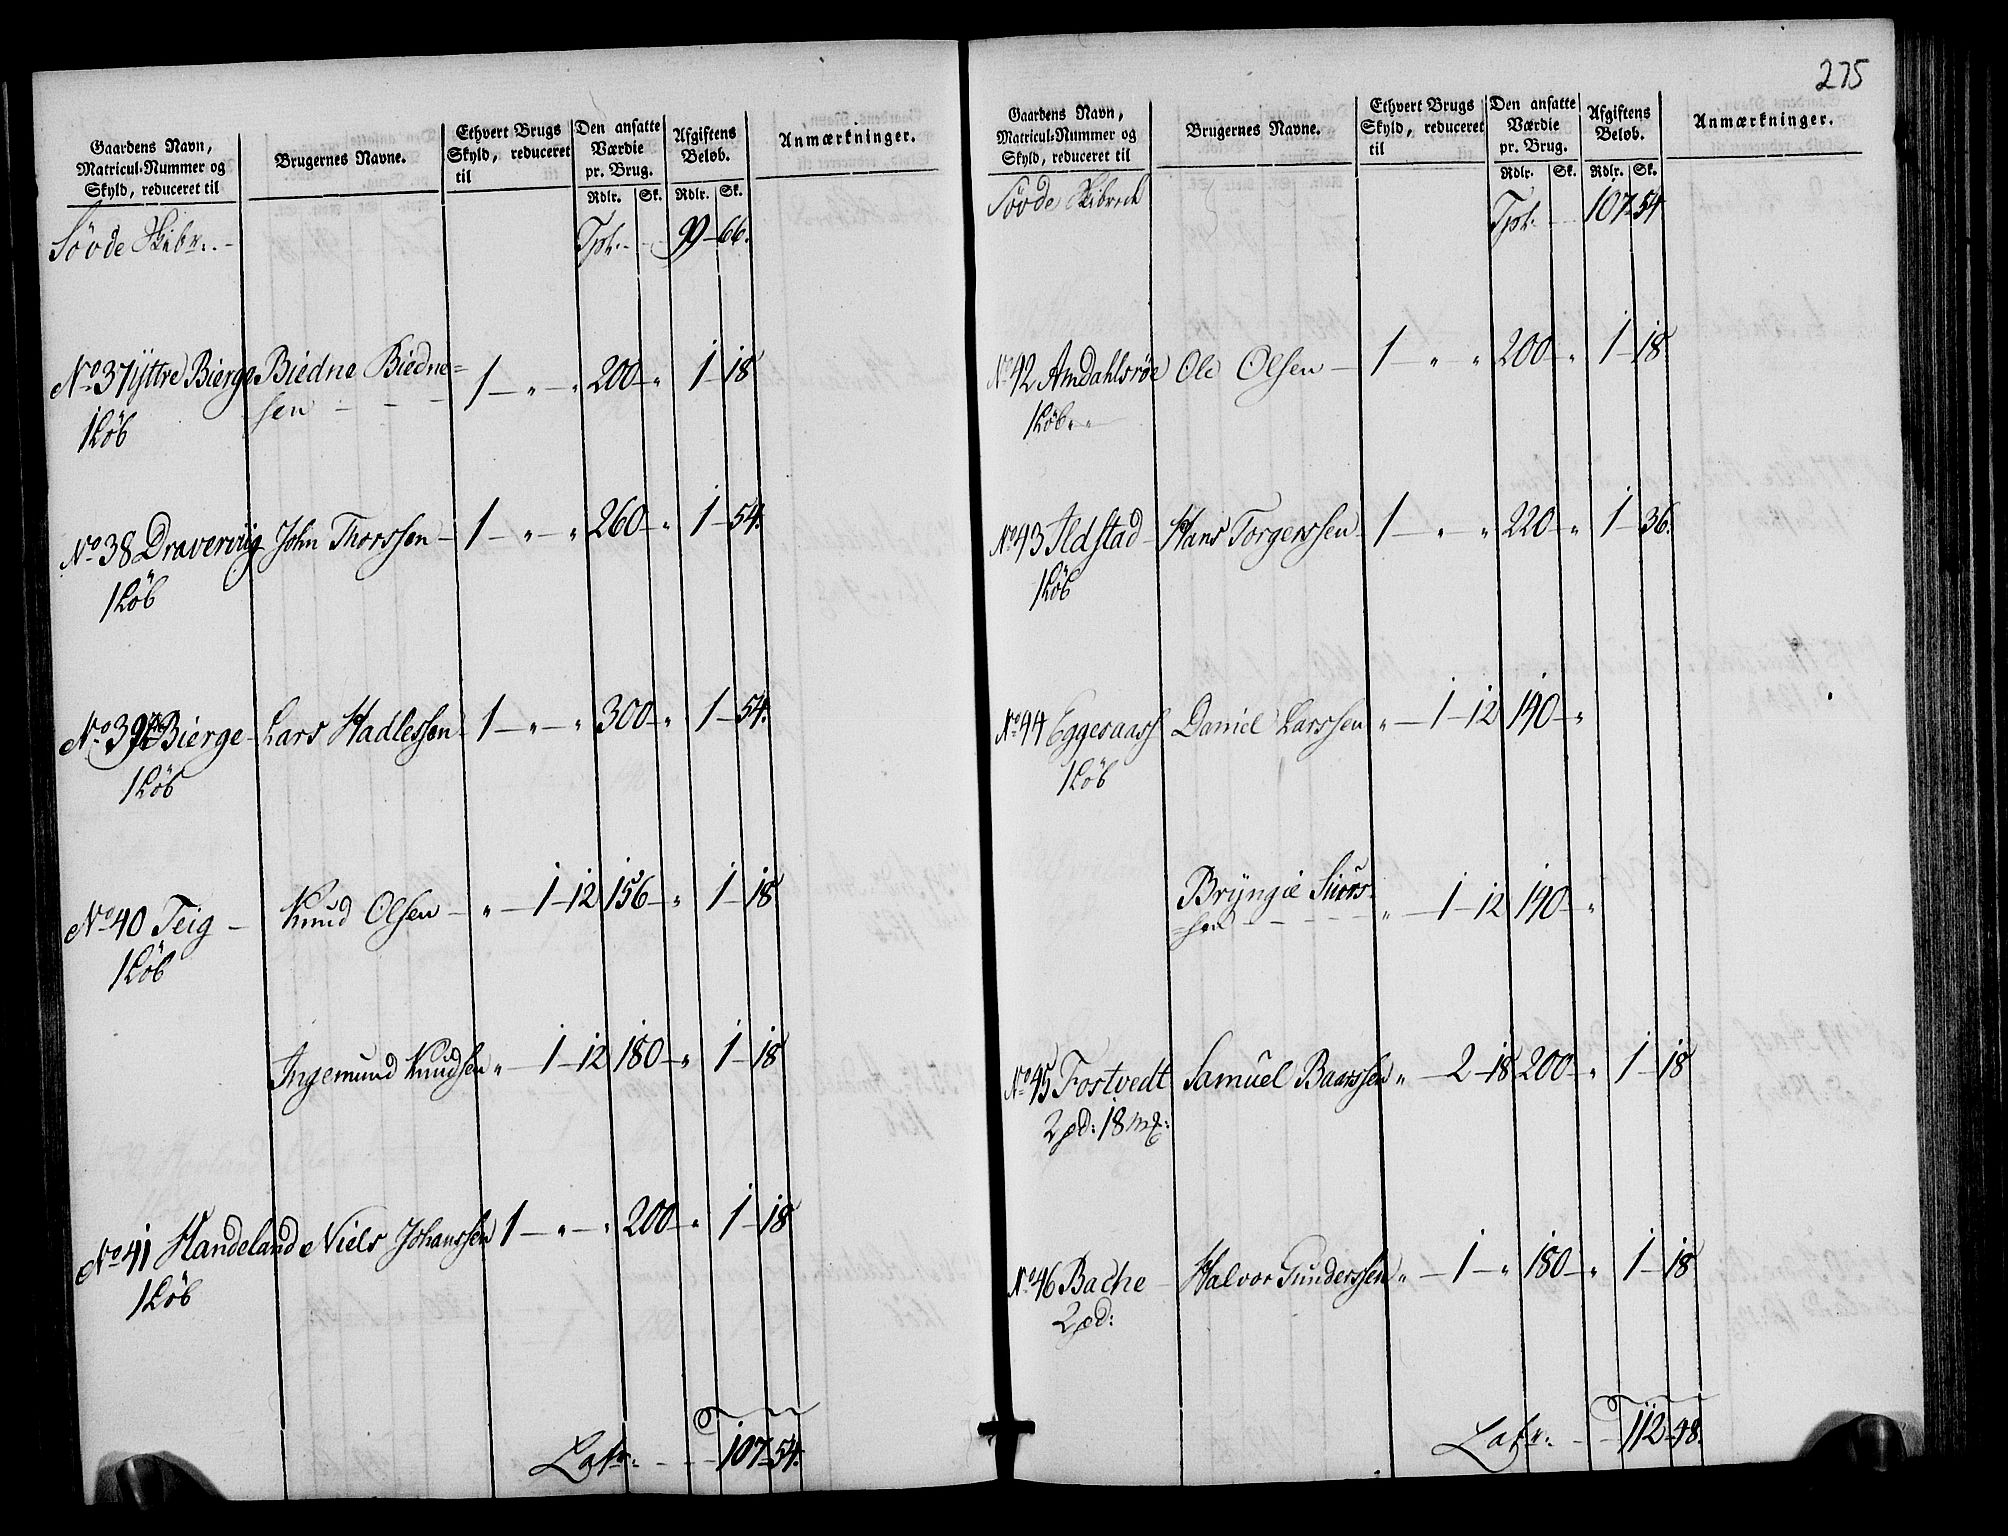 Gaardens Navn,
Matricul-Nummer og
Skyld, reduceret til
Brugernes Navne.
Ethvert Brugs
Skyld, reduceret
til
Den ansatte
Værdie
pr. Brug.
Rdlr. Sk.
Afgiftens
Beløb.
Rdlr. Sk.
Anmærkninger.
Søvde Skibr:
Tpt: 99 66.
No 37 Yttre Bierge Biedne Biedne= 1 — " — " 200 — " 1 — 18
1 Løb sen
No 38 Dravervig John Thorssen 1 — " — " 260 — " 1 — 54.
1 Løb
No 39 Bierge Lars Hadlessen 1 — " — " 300 — " 1 — 54.
1 Løb
No 40 Teig Knud Olsen " — 1 — 12 156 — " 1 — 18
1 Løb
Ingemund Knudsen " — 1 — 12 180 — " 1 — 18
No 41 Handeland Niels Johanssen 1 — " — " 200 — " 1 — 18
1 Løb
Latr: 107 54.
275
Gaardens Navn,
Matricul-Nummer og
Skyld, reduceret til
Brugernes Navne.
Ethvert Brugs
Skyld, reduceret
til
Den ansatte
Værdie
pr. Brug.
Rdlr. Sk.
Afgiftens
Beløb.
Rdlr. Sk.
Anmærkninger.
Søvde Skibred
Tpt: 107 54
No 42 Amdahlsrøe Ole Olsen 1 — " " 200 — " 1 — 18
1 Løb
No 43 Ildstad Hans Torgerssen 1 — " " 220 — " 1 — 36.
1 Løb
No 44 Eggeraas Daniel Larssen " — 1 — 12 140 — "
1 Løb
Bryngie
sen " — 1 — 12 140 — "
No 45 Fostvedt Samuel Baarssen " — 2 — 18 200 — " 1 — 18
2 pd: 18 mk:
No 46 Bache Halvor Gunderssen " — 1 — " 180 — " 1 — 18
2 pd:
Latr: 112 48.